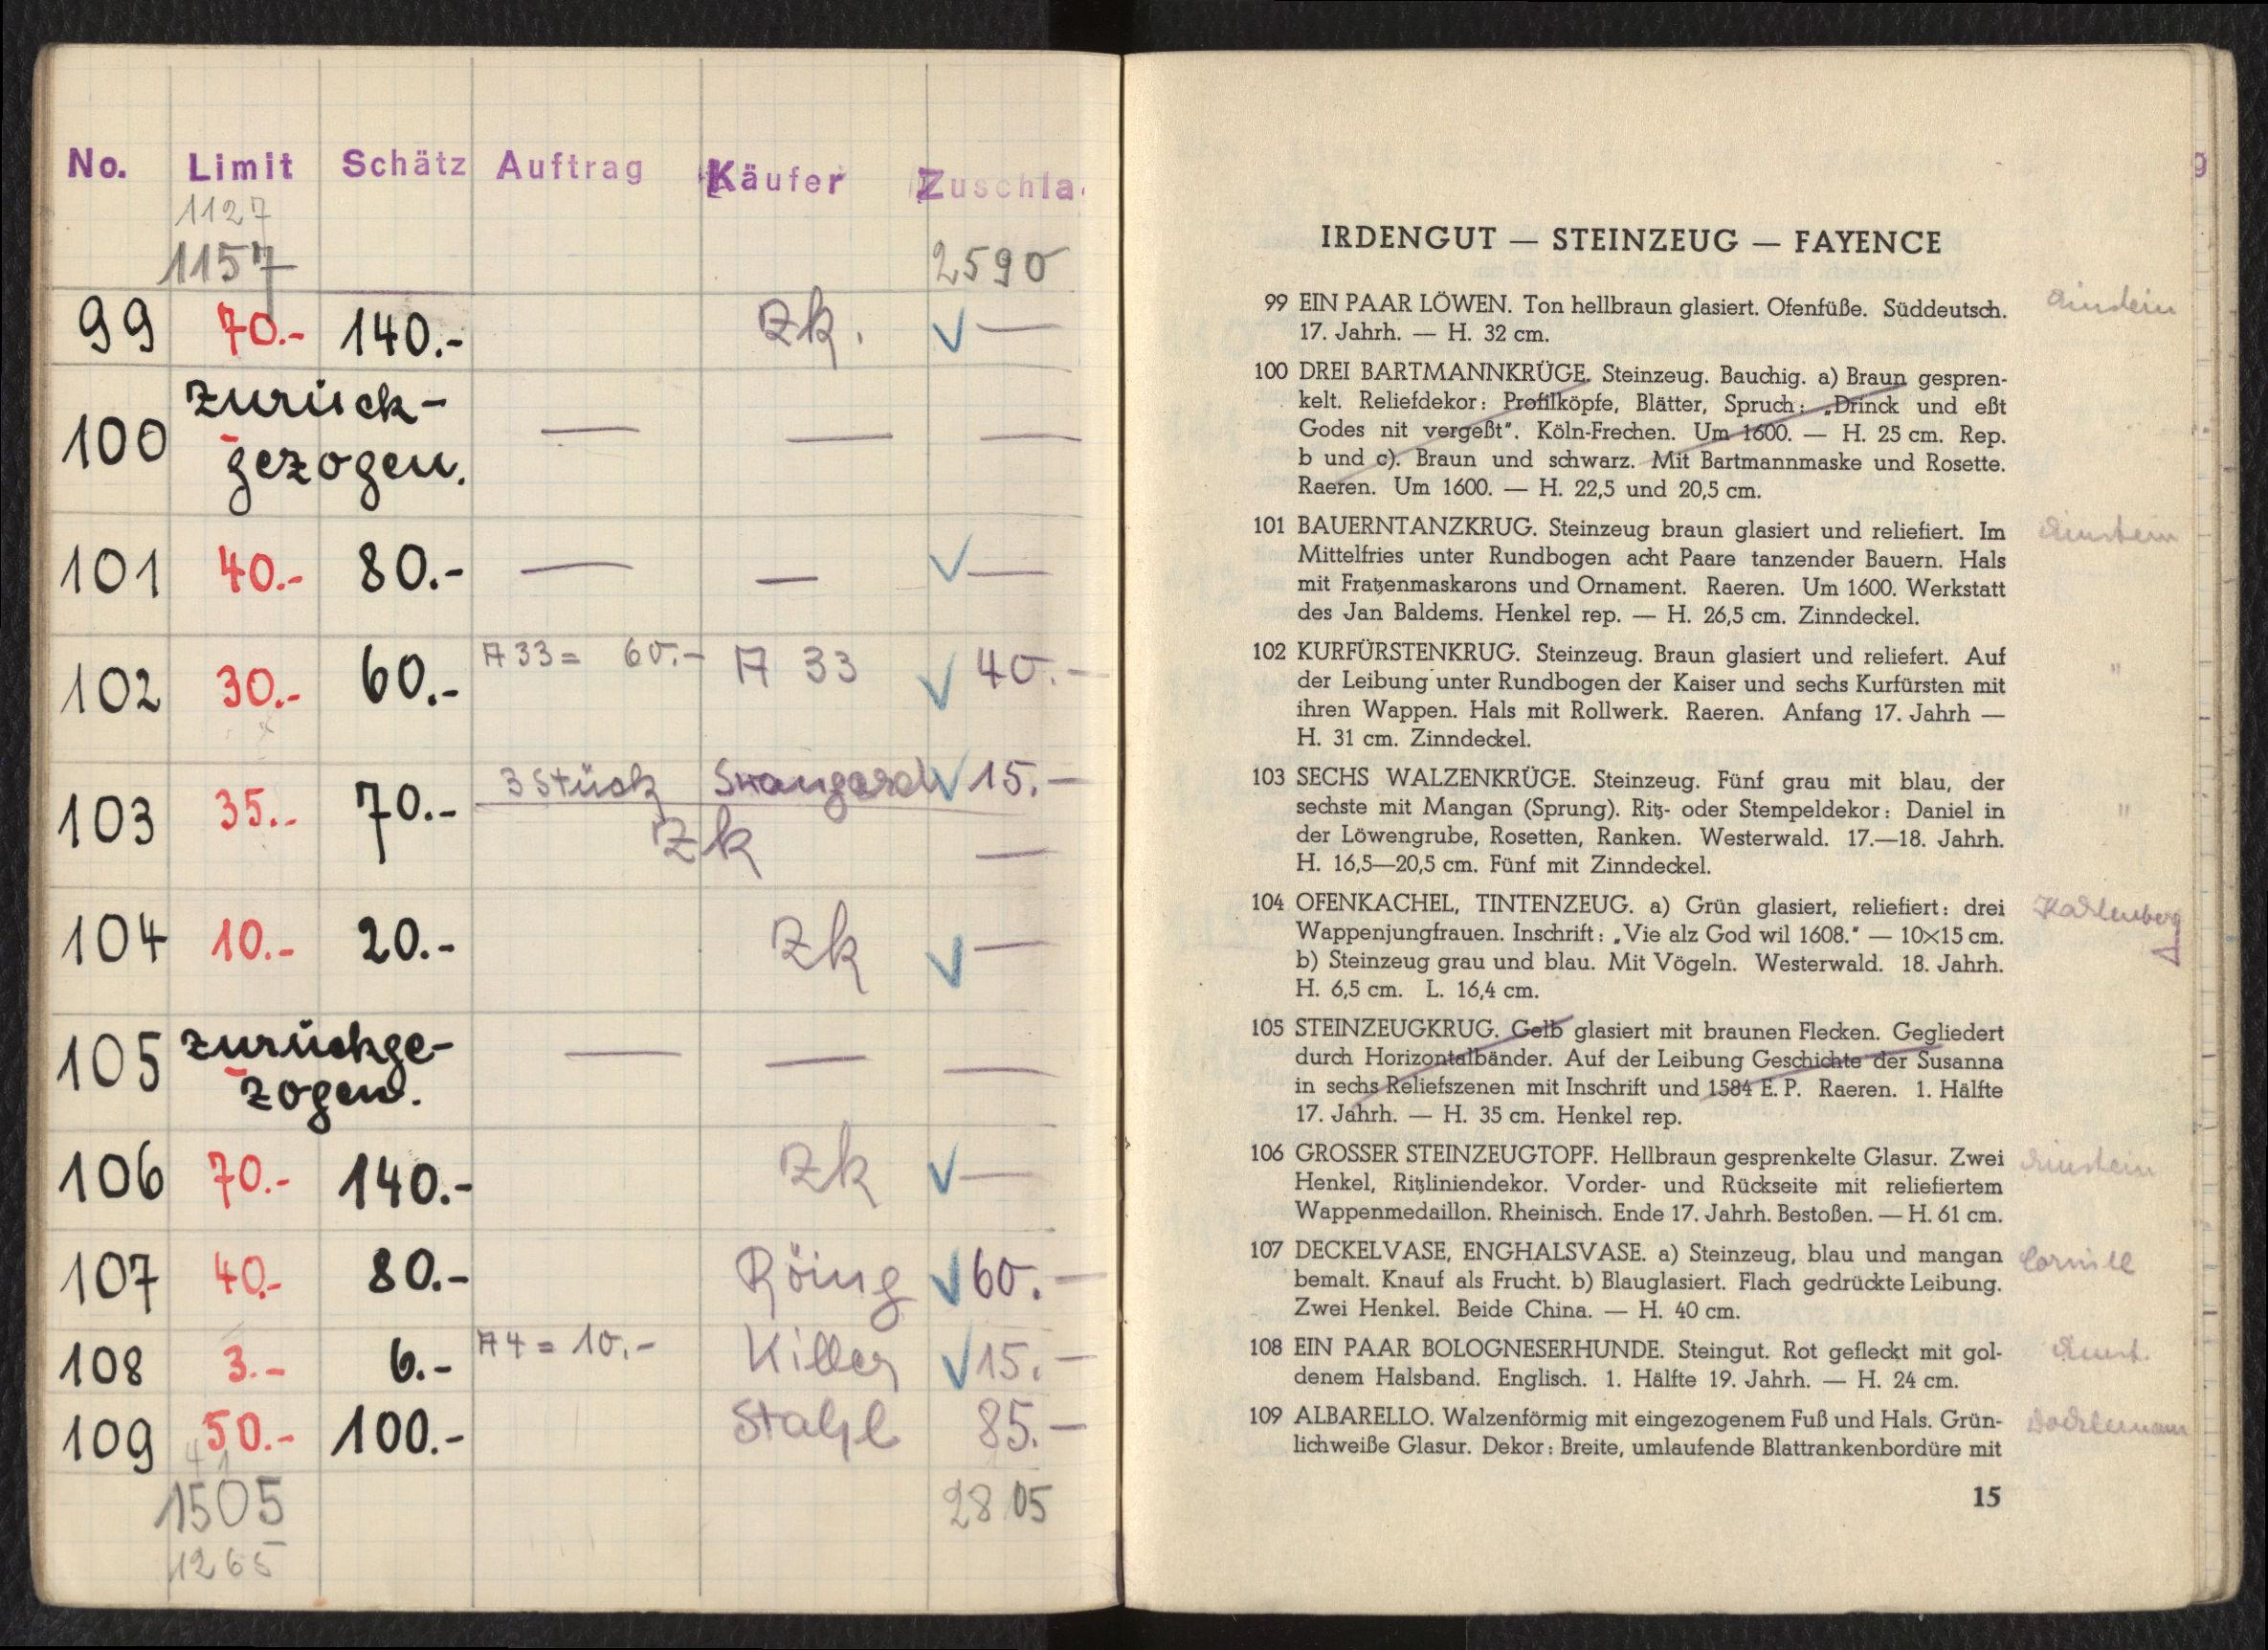 No. Limit Schätz Auftrag Käufer Zuschla
1127
1157 2590
99 70.- 140.- Zk. ✓ —
100 zurück-
gezogen. — — —
101 40.- 80.- — — ✓ —
102 30.- 60.- A 33 = 60.- A 33 ✓ 40.-
103 35.- 70.- 3 Stück ✓ 15.-
Zk —
104 10.- 20.- Zk ✓ —
105 zurückge-
zogen. — — —
106 70.- 140.- Zk ✓ —
107 40.- 80.- Röing ✓ 60.-
108 3.- 6.- A4 = 10.- Killer ✓ 15.-
109 50.- 100.- Stahl 85.-
41
1505 2805
1265
g
IRDENGUT — STEINZEUG — FAYENCE
99 EIN PAAR LÖWEN. Ton hellbraun glasiert. Ofenfüße. Süddeutsch. Einstein
17. Jahrh. — H. 32 cm.
100 DREI BARTMANNKRÜGE. Steinzeug. Bauchig. a) Braun gespren-
kelt. Reliefdekor: Profilköpfe, Blätter, Spruch: „Drinck und eßt
Godes nit vergeßt". Köln-Frechen. Um 1600. — H. 25 cm. Rep.
b und c). Braun und schwarz. Mit Bartmannmaske und Rosette.
Raeren. Um 1600. — H. 22,5 und 20,5 cm.
101 BAUERNTANZKRUG. Steinzeug braun glasiert und reliefiert. Im Einstein
Mittelfries unter Rundbogen acht Paare tanzender Bauern. Hals
mit Fratzenmaskarons und Ornament. Raeren. Um 1600. Werkstatt
des Jan Baldems. Henkel rep. — H. 26,5 cm. Zinndeckel.
102 KURFÜRSTENKRUG. Steinzeug. Braun glasiert und reliefert. Auf "
der Leibung unter Rundbogen der Kaiser und sechs Kurfürsten mit
ihren Wappen. Hals mit Rollwerk. Raeren. Anfang 17. Jahrh —
H. 31 cm. Zinndeckel.
103 SECHS WALZENKRÜGE. Steinzeug. Fünf grau mit blau, der
sechste mit Mangan (Sprung). Ritz- oder Stempeldekor: Daniel in "
der Löwengrube, Rosetten, Ranken. Westerwald. 17.—18. Jahrh.
H. 16,5—20,5 cm. Fünf mit Zinndeckel.
104 OFENKACHEL, TINTENZEUG. a) Grün glasiert, reliefiert: drei
Wappenjungfrauen. Inschrift: „Vie alz God wil 1608." — 10×15 cm.
b) Steinzeug grau und blau. Mit Vögeln. Westerwald. 18. Jahrh.
H. 6,5 cm. L. 16,4 cm.
105 STEINZEUGKRUG. Gelb glasiert mit braunen Flecken. Gegliedert
durch Horizontalbänder. Auf der Leibung Geschichte der Susanna
in sechs Reliefszenen mit Inschrift und 1584 E. P. Raeren. 1. Hälfte
17. Jahrh. — H. 35 cm. Henkel rep.
106 GROSSER STEINZEUGTOPF. Hellbraun gesprenkelte Glasur. Zwei Einstein
Henkel, Ritzliniendekor. Vorder- und Rückseite mit reliefiertem
Wappenmedaillon. Rheinisch. Ende 17. Jahrh. Bestoßen. — H. 61 cm.
107 DECKELVASE, ENGHALSVASE. a) Steinzeug, blau und mangan Cornill
bemalt. Knauf als Frucht. b) Blauglasiert. Flach gedrückte Leibung.
Zwei Henkel. Beide China. — H. 40 cm.
108 EIN PAAR BOLOGNESERHUNDE. Steingut. Rot gefleckt mit gol- Einst.
denem Halsband. Englisch. 1. Hälfte 19. Jahrh. — H. 24 cm.
109 ALBARELLO. Walzenförmig mit eingezogenem Fuß und Hals. Grün-
lichweiße Glasur. Dekor: Breite, umlaufende Blattrankenbordüre mit
15